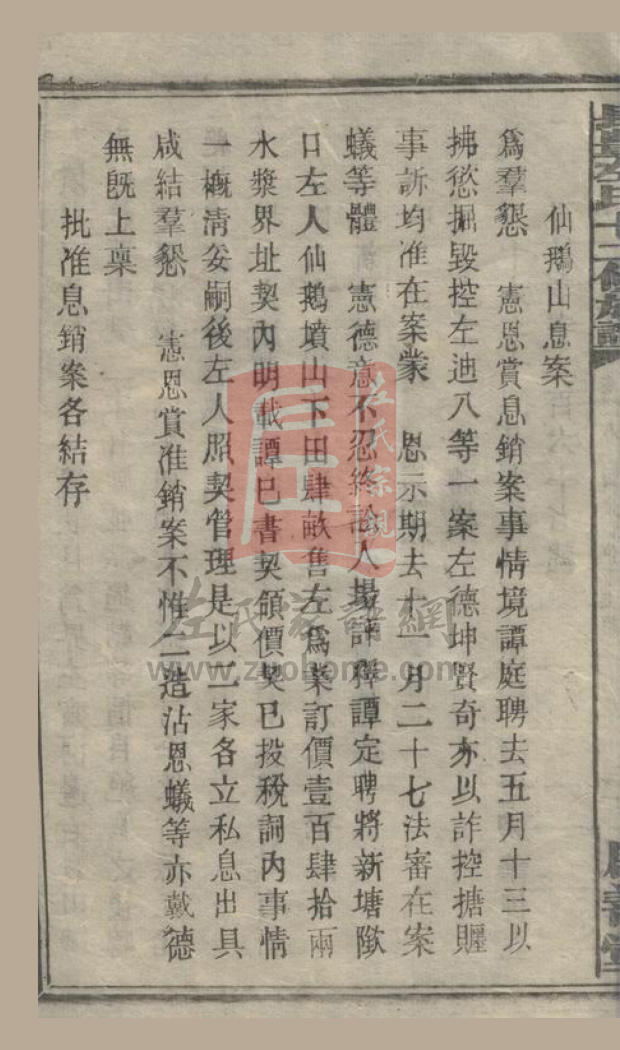 仙鵝山息案
爲羣懇 憲恩賞息銷案事情境譚庭聘去五月十三以
拂慾掘毀控左迪八等一案左德坤賢奇亦以詐控搪贓
事訴均准在案蒙 恩示期去十一月二十七法審在案
蟻等體 憲德意不忍終訟入場評釋譚定聘將新塘墩
口左人仙鵝墳山下田肆畝售左爲業訂價壹百肆拾兩
水漿界址契內明載譚已書契領價契已投稅詞內事情
一概清妥嗣後左人照契管理是以二家各立私息出具
咸結羣懇 憲恩賞准銷案不惟二造沾恩蟻等亦戴德
無既上稟
批准息銷案各結存
左氏宗親
左氏家譜網
www.zuohome.com